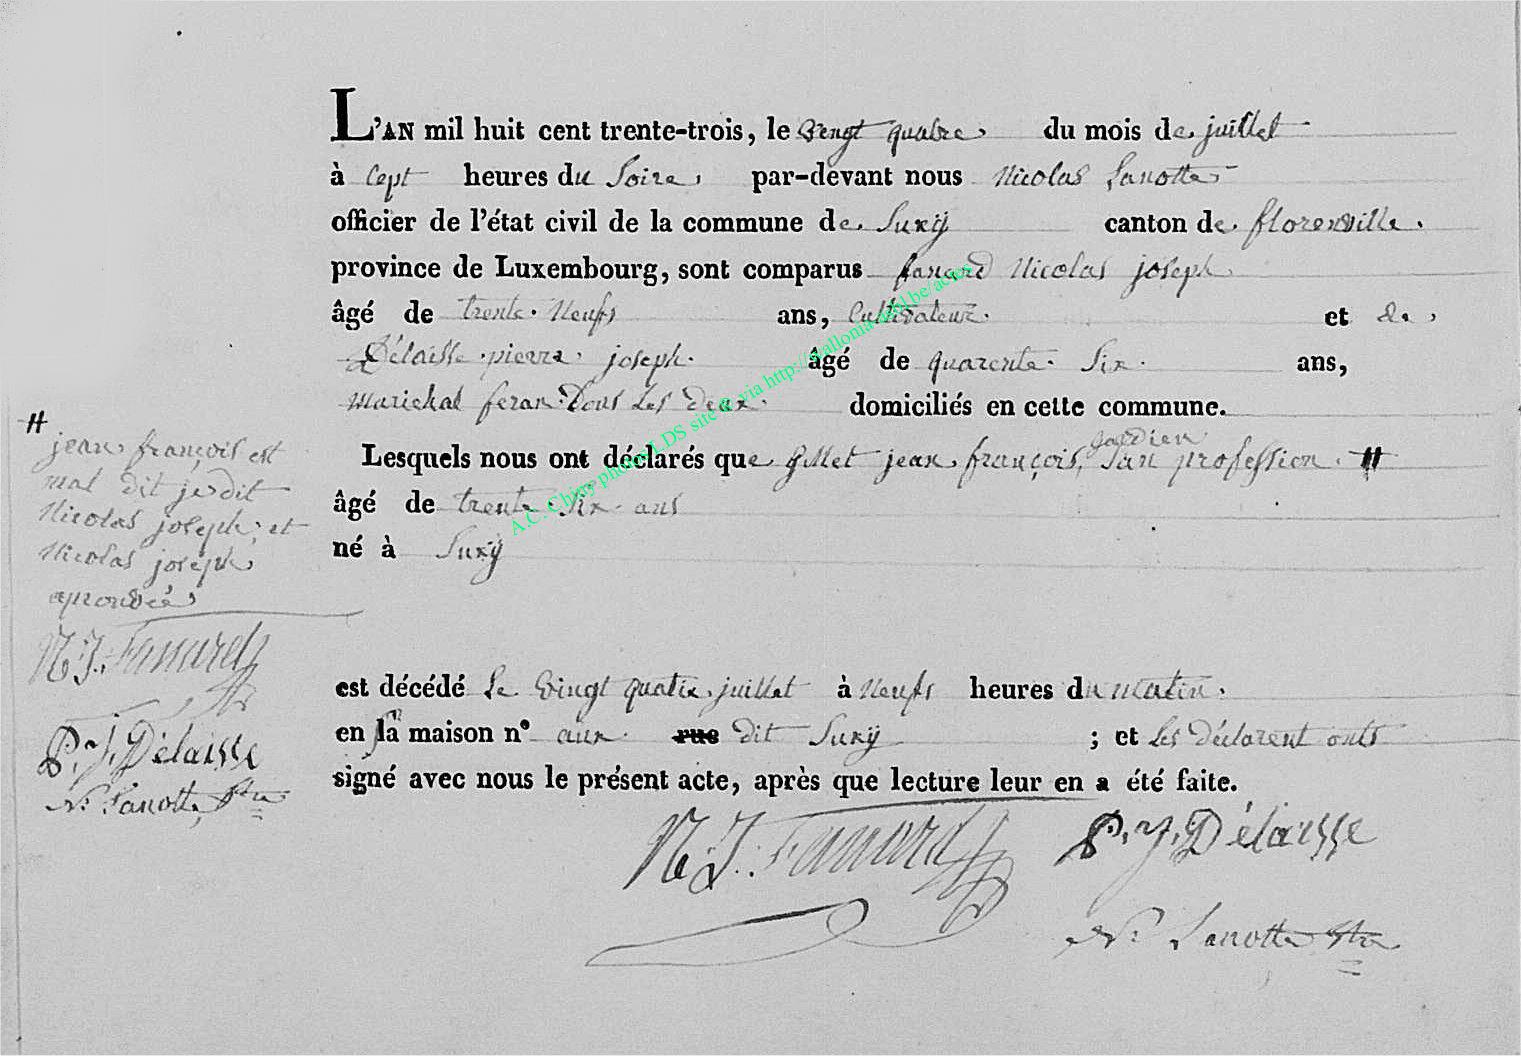 L'AN mil huit cent trente-trois, le vengt quatre du mois de juillet
à Cept heures du Soire, par-devant nous Nicolas Lanotte
officier de l'état civil de la commune de Suxÿ canton de florenville.
province de Luxembourg, sont comparus fanard Nicolas joseph
âgé de trente Neufs ans, Cultivateur et de
Délaisse pierre joseph âgé de quarente Six ans,
marichal feran tous Les deux domiciliés en cette commune.
Lesquels nous ont déclarés que gillet jean françois, gardien San profession #
âgé de trente Six ans
né à Suxÿ
est décédé Le vingt quatre juillet à Neufs heures du matin.
en Sa maison n° aux rue dit Suxÿ ; et Les déclarent onts
signé avec nous le présent acte, après que lecture leur en a été faite.
N. J. Fanard P. J. Délaisse
N. Lanotte
#
jean françois est
mal dit je dit
Nicolas joseph, et
Nicolas joseph
aprouvée
N. J. Fanard
P. J. Délaisse
N. Lanotte
A.C. Chiny photos LDS site © via